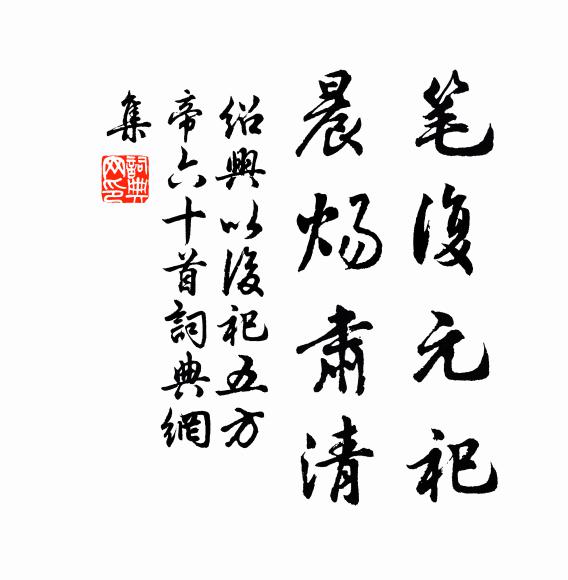 笔復元祀
晨炀肃清
绍興以後祀五方
帝六十首詞典網
集
詞典
网印